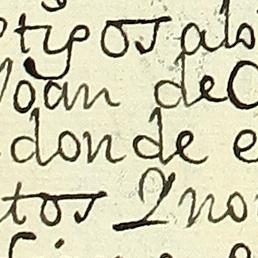 tigos alo
Joan de C
donde e
tos Ino